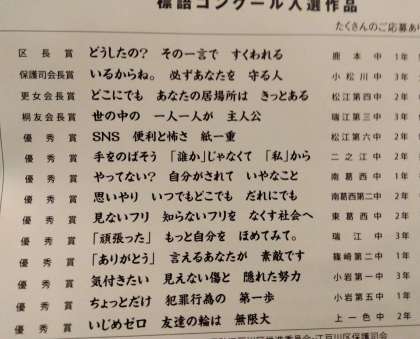 標語コンクール入選作品
たくさんのご応募あり
区長賞 どうしたの? その一言で すくわれる 鹿本中 1年
保護司会長賞 いるからね。 必ずあなたを 守る人 小松川中 3年
更女会長賞 どこにでも あなたの居場所は きっとある 松江第四中 2年
桐友会長賞 世の中の 一人一人が 主人公 瑞江第三中 3年
優秀賞 SNS 便利と怖さ 紙一重 松江第六中 2年
優秀賞 手をのばそう 「誰か」じゃなくて 「私」から 二之江中 2年
優秀賞 やってない? 自分がされて いやなこと 南葛西中 1年
優秀賞 思いやり いつでもどこでも だれにでも 南葛西第二中 2年
優秀賞 見ないフリ 知らないフリを なくす社会へ 東葛西中 2年
優秀賞 「頑張った」 もっと自分を ほめてみて。 瑞江中 3年
優秀賞 「ありがとう」 言えるあなたが 素敵です 篠崎第二中 1年
優秀賞 気付きたい 見えない傷と 隠れた努力 小岩第一中 3年
優秀賞 ちょっとだけ 犯罪行為の 第一歩 小岩第五中 1年
優秀賞 いじめゼロ 友達の輪は 無限大 上一色中 2年
推進委員会・江戸川区保護司会